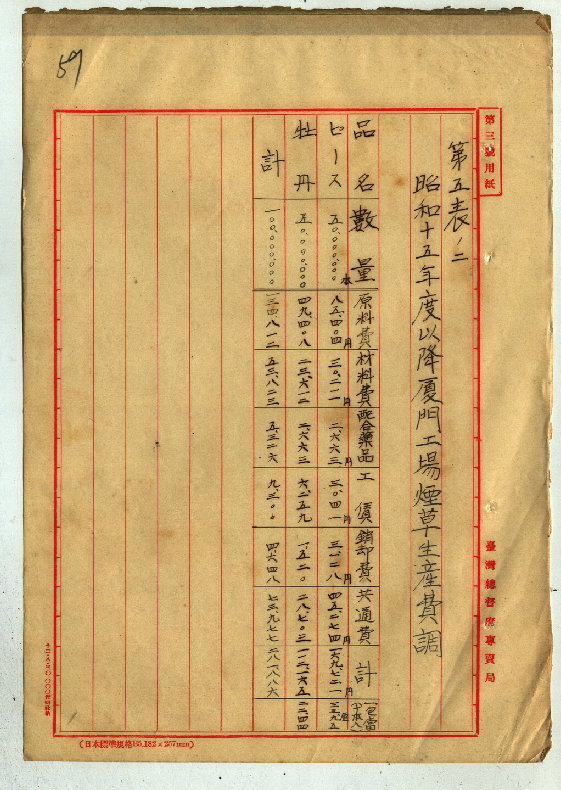 59
第三號用紙
臺灣總督府專賣局
第五表ノ二
昭和十五年度以降廈門工場煙草生産費調
品名 數量 原料費 材料費 配合藥品 工價 銷却費 共通費 計 一包當(十本入)
ピース 五〇,〇〇〇,〇〇〇本 八五,四〇四円 三〇,二一一円 二,六六三円 三,〇四一円 三,一二八円 四五,二七四円 一六九,七二一円 三三九五
牡丹 五〇,〇〇〇,〇〇〇 四九,四〇八 二三,六一二 二,六六三 六,二五九 一,五二〇 二八,七〇三 一一二,一六五 二二四四
計 一〇〇,〇〇〇,〇〇〇 一三四,八一二 五三,八二三 五,三二六 九,三〇〇 四,六四八 七三,九七七 二八一,八八六
(日本標準規格B5,182×257mm)